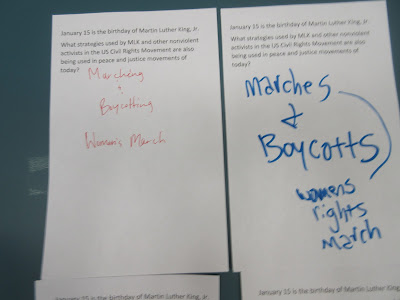 January 15 is the birthday of Martin Luther King, Jr.
What strategies used by MLK and other nonviolent
activists in the US Civil Rights Movement are also
being used in peace and justice movements of
today?
Marching
&
Boycotting
Women's March
January 15 is the birthday of Martin Luther King, Jr.
What strategies used by MLK and other nonviolent
activists in the US Civil Rights Movement are also
being used in peace and justice movements of
today?
Marches
&
Boycotts
womens
rights
march
January 15 is the birthday of Martin Luther King, Jr.
January 15 is the birthday of Martin